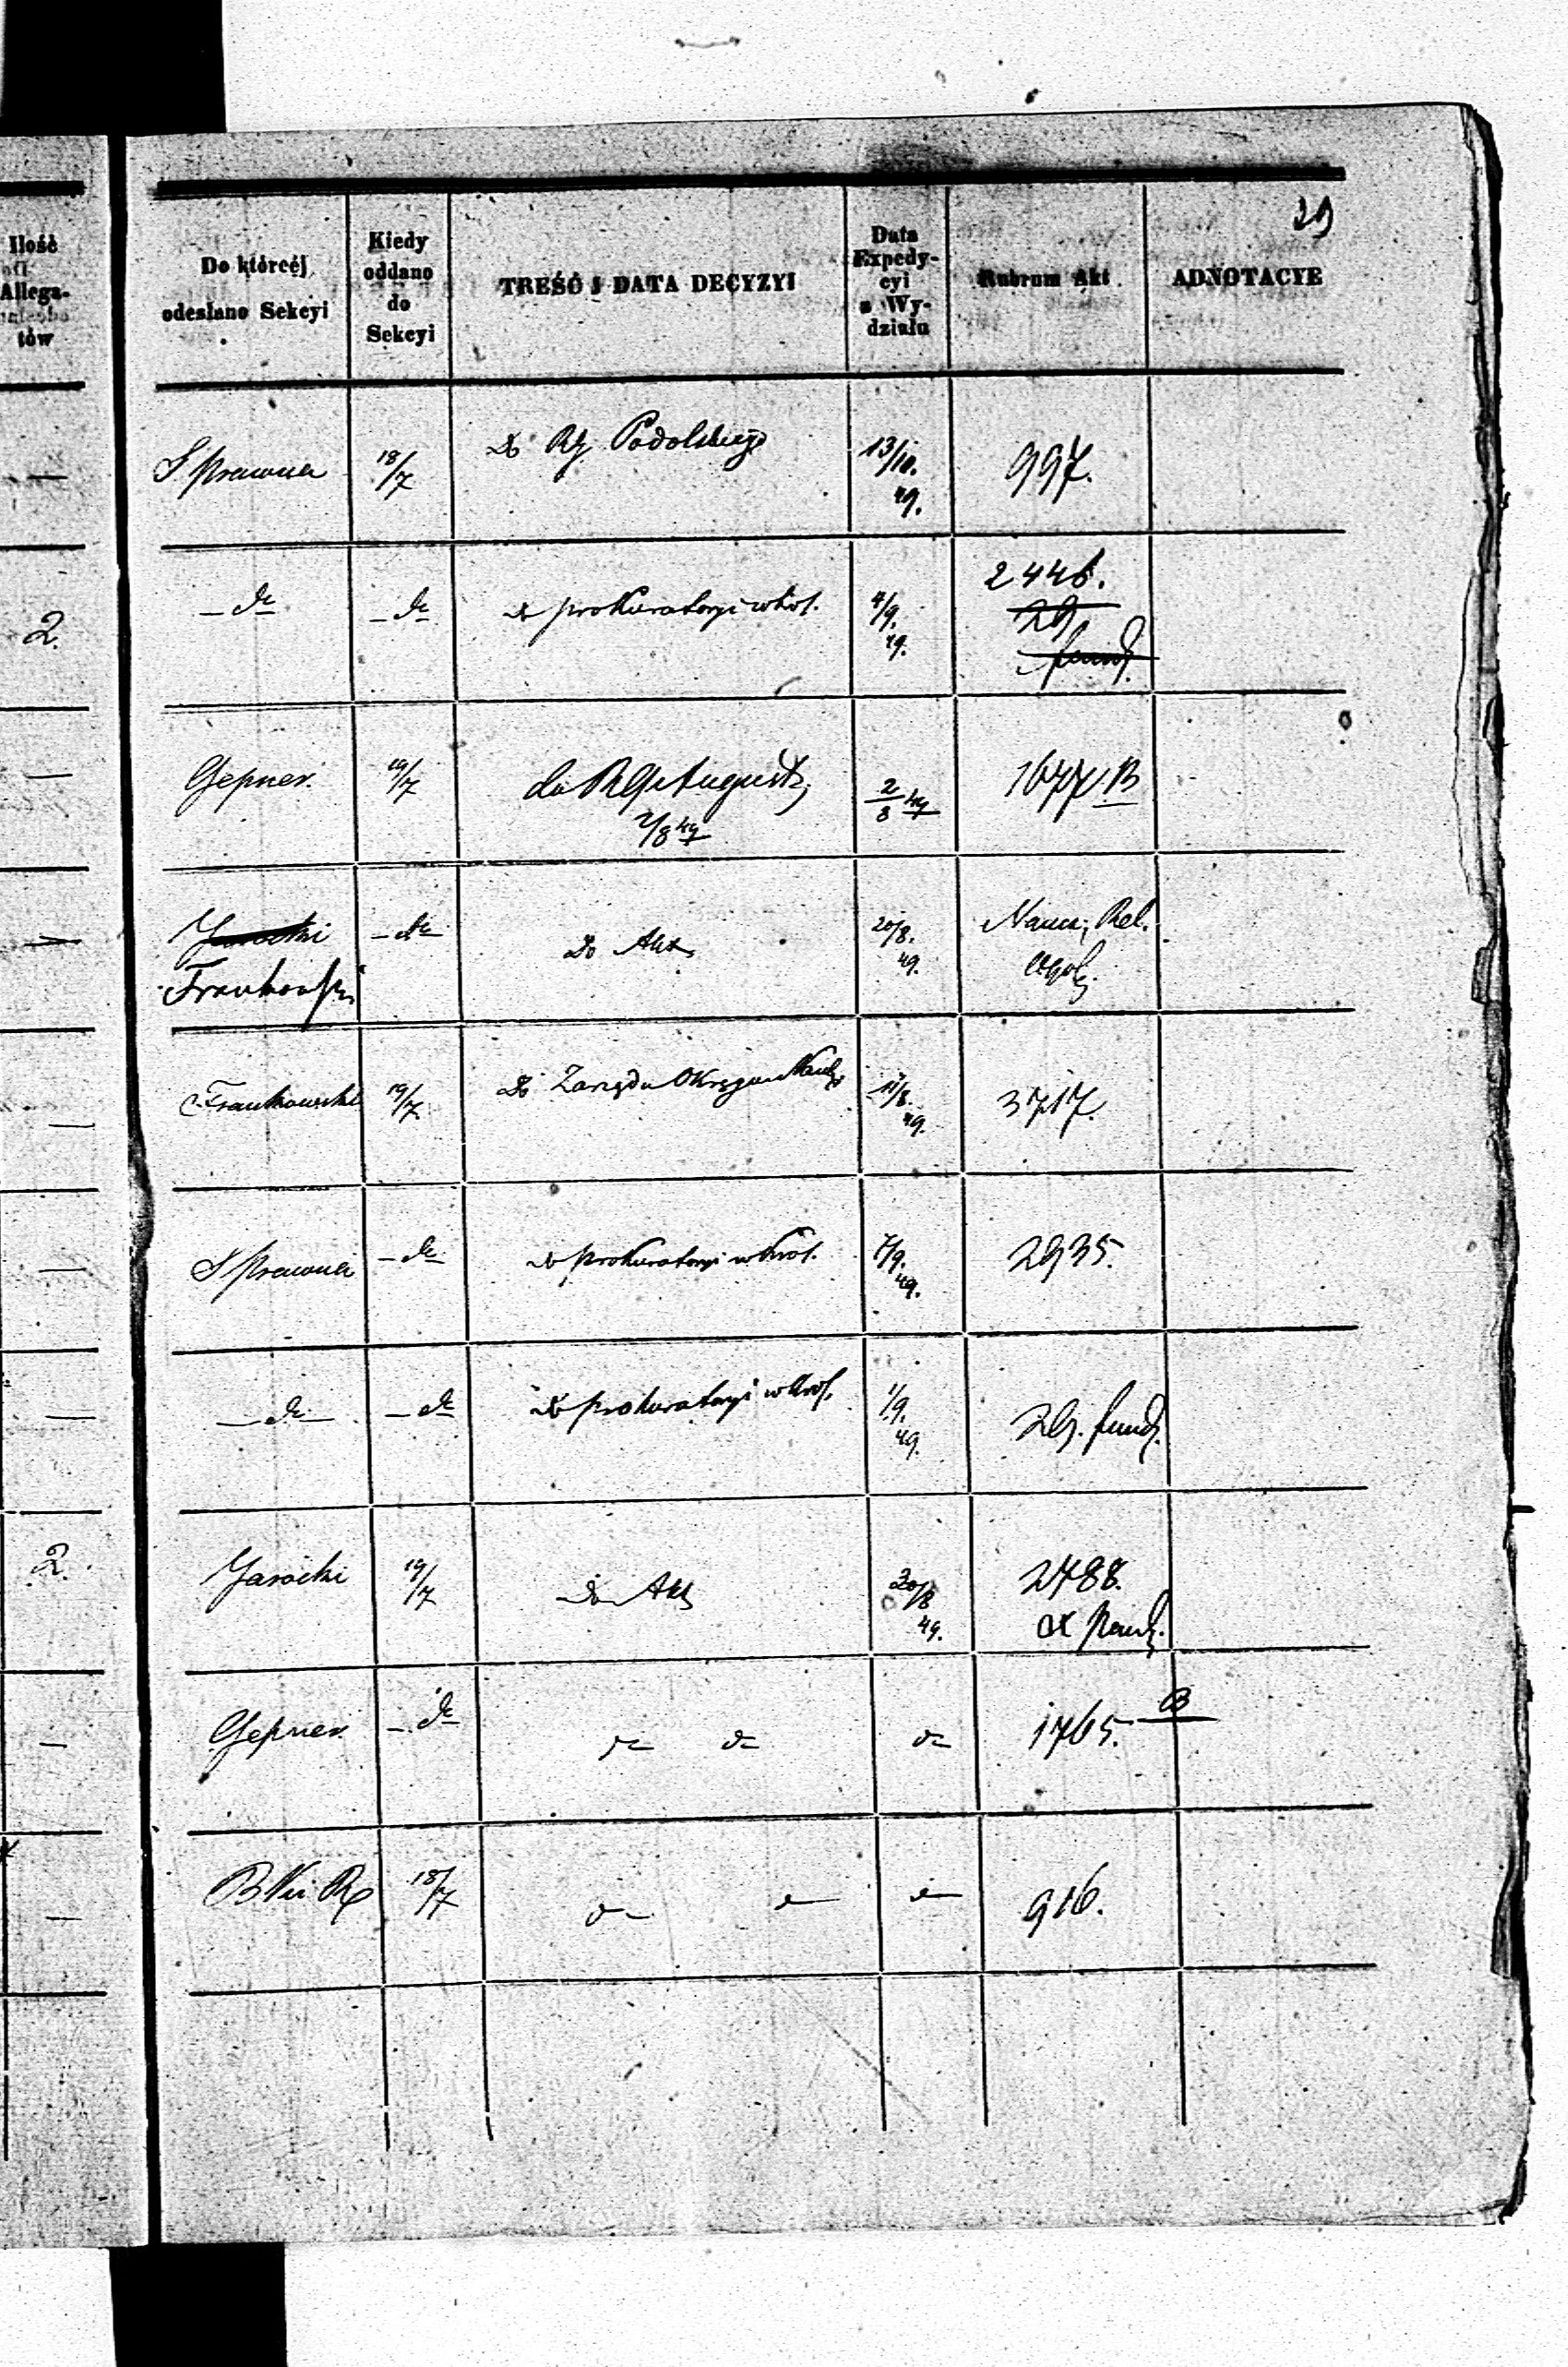 29
Ilość
Allega-
tów
Do któréj
odesłano Sekcyi
Kiedy
oddano
do
Sekcyi
TREŚĆ I DATA DECYZYI
Data
Expedy-
cyi
z Wy-
działu
Rubrum Akt
ADNOTACYE
—
S Prawna
18/7
Do Podolskiego
13/10.
49.
997.
2.
— do
— do
Do prokuratoryi w Król.
4/9.
49.
2446.
29
fund.
—
Gepner.
19/7
do August.
2/8 49
2/8 49
1677. B
—
Jarocki
Frankowski
— do
Do Akt
20/8.
49.
Rel.
—
Frankowski
19/7
Do Zarządu Okręgu Nauk.
11/8.
49.
3717.
—
S Prawna
— do
Do prokuratoryi w Król.
7/9.
49.
2935.
—
— do —
— do
Do prokuratoryi w Król.
1/9.
49.
29. fund.
2.
Jarocki
19/7
Do Akt
20/8
49.
2488.
—
Gepner.
— do
do do
do
1765. B
—
18/7
do do
do
916.